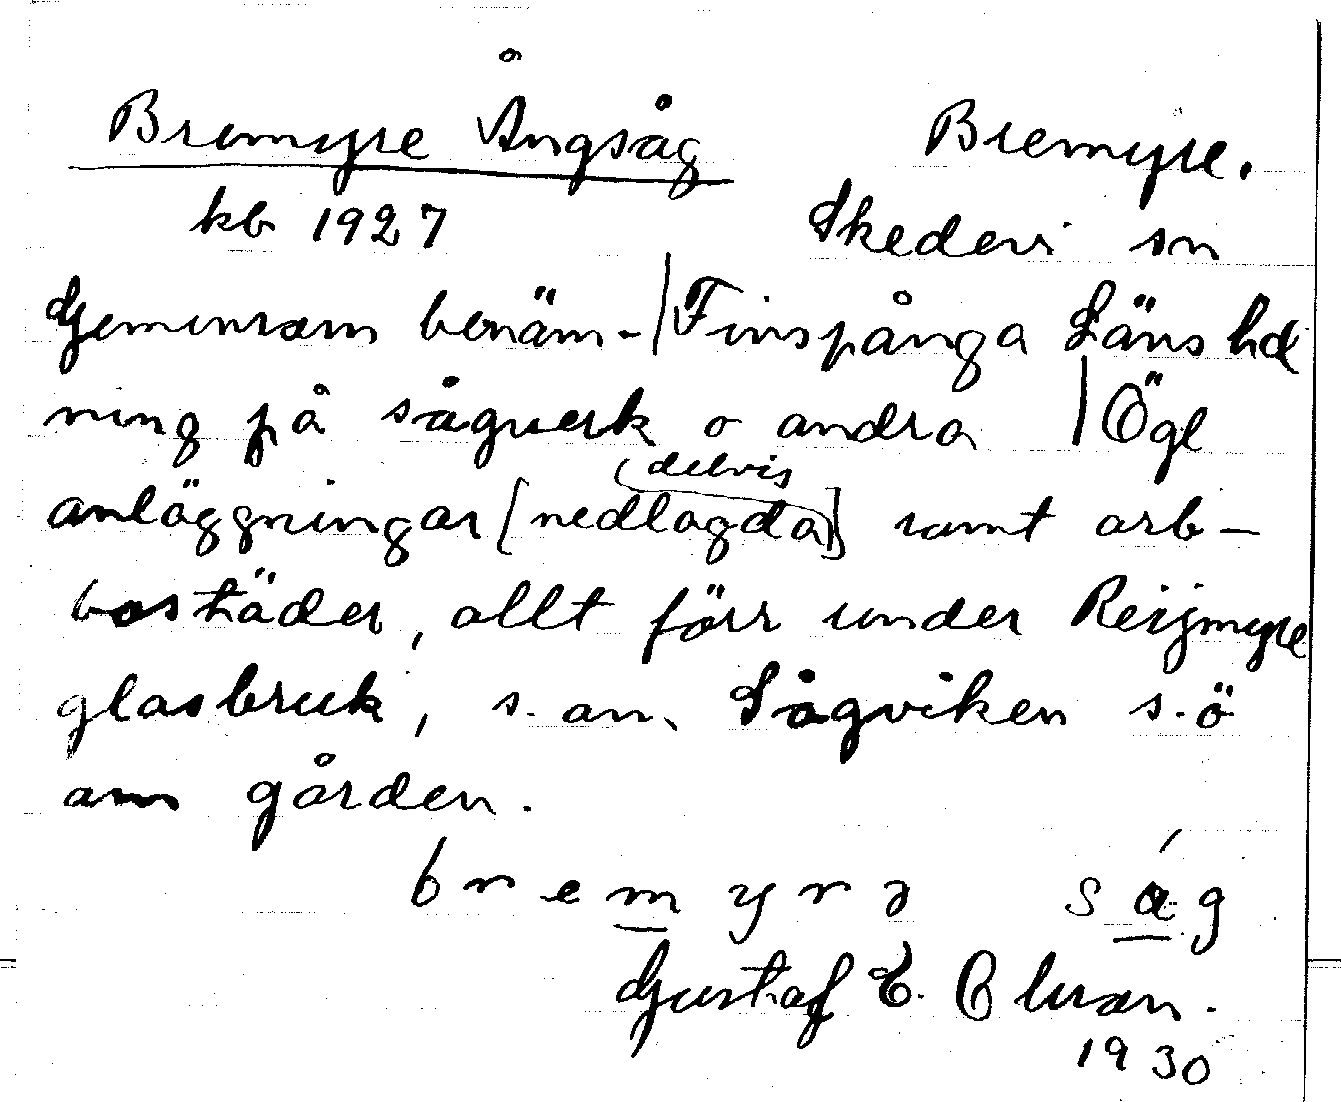 Bremyre Ångsåg Bremyre.
kb 1927 Skedevi sn
Gemensam benäm- Finspånga Läns hd
ning på sågverk o andra Ögl
anläggningar [(delvis) nedlagda] samt arb-
bostäder, allt förr under Reijmyre
glasbruk, s. an. Sågviken s.ö
om gården.
bremyrə såg
Gustaf E.
1930